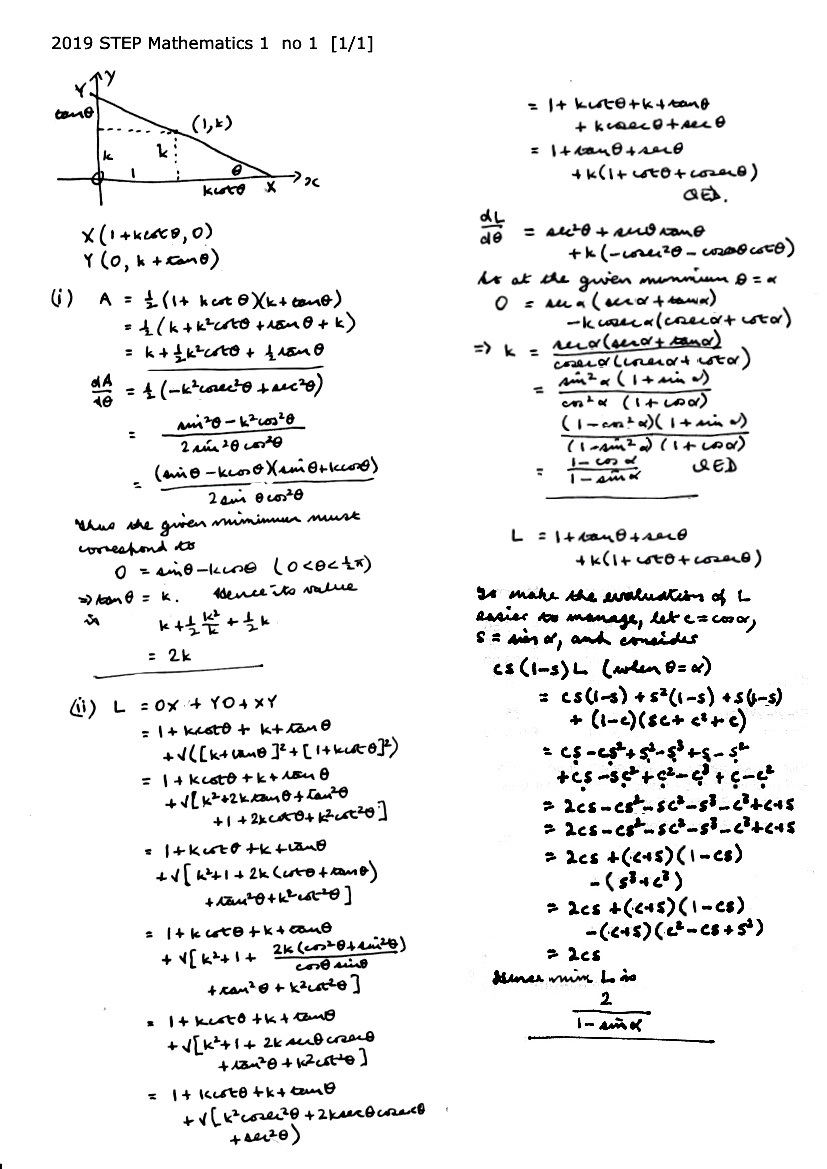 2019 STEP Mathematics 1 no 1 [1/1]
Y
Y
tanθ
(1,k)
k
k
1
θ
O
kcotθ
X
x
X(1+kcotθ, 0)
Y(0, k+tanθ)
(i) A = ½(1+kcotθ)(k+tanθ)
= ½(k+k²cotθ+tanθ+k)
= k+½k²cotθ+½tanθ
dA/dθ = ½(-k²cosec²θ+sec²θ)
= (sin²θ-k²cos²θ)/(2sin²θcos²θ)
= (sinθ-kcosθ)(sinθ+kcosθ)/(2sinθcos²θ)
Thus the given minimum must
correspond to
0 = sinθ-kcosθ (0<θ<½π)
⇒ tanθ = k. Hence its value
is k+½k²/k+½k
= 2k
(ii) L = OX + YO + XY
= 1+kcotθ+k+tanθ
+√([k+tanθ]²+[1+kcotθ]²)
= 1+kcotθ+k+tanθ
+√[k²+2ktanθ+tan²θ
+1+2kcotθ+k²cot²θ]
= 1+kcotθ+k+tanθ
+√[k²+1+2k(cotθ+tanθ)
+tan²θ+k²cot²θ]
= 1+kcotθ+k+tanθ
+√[k²+1+ 2k(cos²θ+sin²θ)/(cosθsinθ)
+tan²θ+k²cot²θ]
= 1+kcotθ+k+tanθ
+√[k²+1+2ksecθcosecθ
+tan²θ+k²cot²θ]
= 1+kcotθ+k+tanθ
+√[k²cosec²θ+2ksecθcosecθ
+sec²θ)
= 1+kcotθ+k+tanθ
+kcosecθ+secθ
= 1+tanθ+secθ
+k(1+cotθ+cosecθ)
QED.
dL/dθ = sec²θ+secθtanθ
+k(-cosec²θ-cosecθcotθ)
So at the given minimum θ=α
0 = secα(secα+tanα)
-kcosecα(cosecα+cotα)
⇒ k = secα(secα+tanα)/(cosecα(cosecα+cotα))
= sin²α(1+sinα)/(cos²α(1+cosα))
(1-cos²α)(1+sinα)/((1-sin²α)(1+cosα))
= (1-cosα)/(1-sinα) QED
L = 1+tanθ+secθ
+k(1+cotθ+cosecθ)
To make the evaluation of L
easier to manage, let c=cosα,
s=sinα, and consider
cs(1-s)L (when θ=α)
= cs(1-s)+s²(1-s)+s(1-s)
+(1-c)(sc+c²+c)
= cs-cs²+s²-s³+s-s²
+cs-sc²+c²-c³+c-c²
= 2cs-cs²-sc²-s³-c³+c+s
= 2cs-cs²-sc²-s³-c³+c+s
= 2cs+(c+s)(1-cs)
-(s³+c³)
= 2cs+(c+s)(1-cs)
-(c+s)(c²-cs+s²)
= 2cs
Hence min L is
2/(1-sinα)